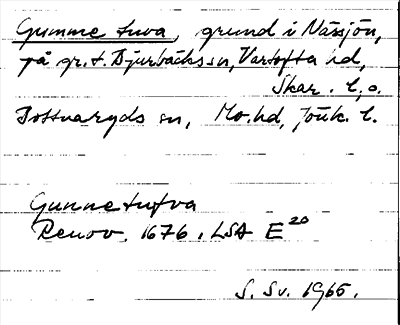 Gumme tuva, grund i Nässjön,
på gr. t. Djurbäcks sn, Vartofta hd,
Skar. l., o.
Bottnaryds sn, Mo. hd, Jönk. l.
Gunne tufva
Renov. 1676. LSA E 20
S. Sv. 1965.